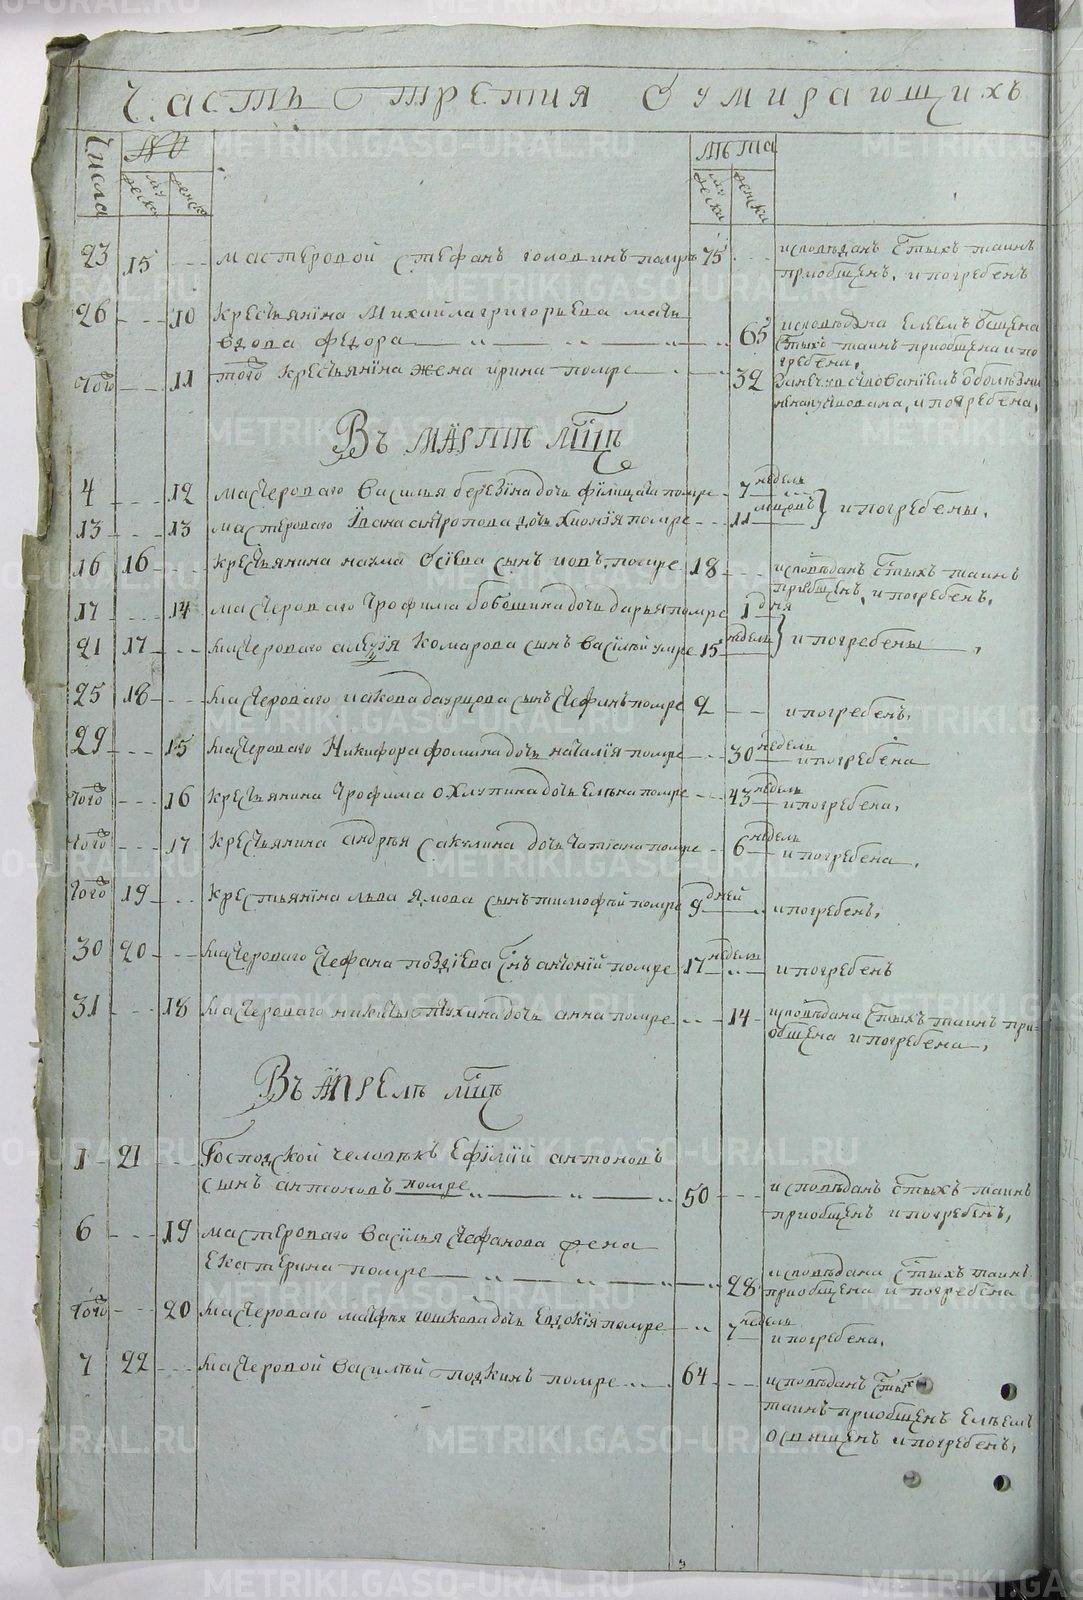 Часть третия О умирающихъ
Числа № лѣта
муȥеска женска мужеска женски
23 15 --- мастеровой Стефанъ Головинъ помре 75 --- исповѣданъ Стыхъ таинъ
приобщенъ, и погребенъ
26 --- 10 Крестьянина Михайла Григорьева мать
вдова Федора 65 исповѣдана Елеемъ Освщена
Стыхъ таинъ приобщена и по
гребена,
того --- 11 того Крестьянина жена Ирина помре 32
и погребена,
Въ Мартѣ Мцѣ
4 --- 12 мастероваго Василья Березина дочь помре 7 недель
13 --- 13 мастероваго Ивана Антропова дочь Хионія помре --- 11 и погребены,
16 16 --- крестьянина сынъ Иовъ помре 18 --- исповѣданъ Стыхъ таинъ
приобщенъ, и погребенъ,
17 --- 14 мастероваго Трофима Бобошина дочь Дарья помре 1 дня
21 17 --- мастероваго Алеѯія Комарова сынъ Василей умре 15 недель и погребены,
25 18 --- мастероваго Иакова сынъ Стефанъ помре 2 --- и погребенъ,
29 --- 15 мастероваго Никифора Фомина дочь Наталія помре --- 30 недель
и погребена
того --- 16 крестьянина Трофима Охлупина дочь Елена помре --- 43 недель
и погребена,
того --- 17 крестьянина Андрѣя Сакулина дочь Татіана помре 6 недель
и погребена,
того 19 --- крестьянина Льва Ямова сынъ Тимофей помре 9 дней
и погребенъ,
30 20 --- мастероваго Стефана Поздіева Снъ Антоній помре 17 недель
и погребенъ
31 --- 18 мастероваго Никиты дочь Анна помре --- 14 исповѣдана Стыхъ таинъ при-
общена и погребена,
Въ Апрелѣ Мцѣ
1 21 --- Господской человѣкъ Ефимій Антоновъ
сынъ Антоновъ помре 50 --- исповѣданъ Стыхъ таинъ
приобщенъ и погребенъ,
6 --- 19 мастероваго Василья Стефанова жена
Екатерина помре 28 исповѣдана Стыхъ таинъ
приобщена и погребена
того --- 20 мастероваго Матфѣя Юшкова дочь Евдокія помре 7 недель
и погребена,
7 22 --- мастеровой Василѣй помре 64 --- исповѣданъ Стыхъ
таинъ приобщенъ Елеемъ
освященъ и погребенъ,
METRIKI.GASO-URAL.RU